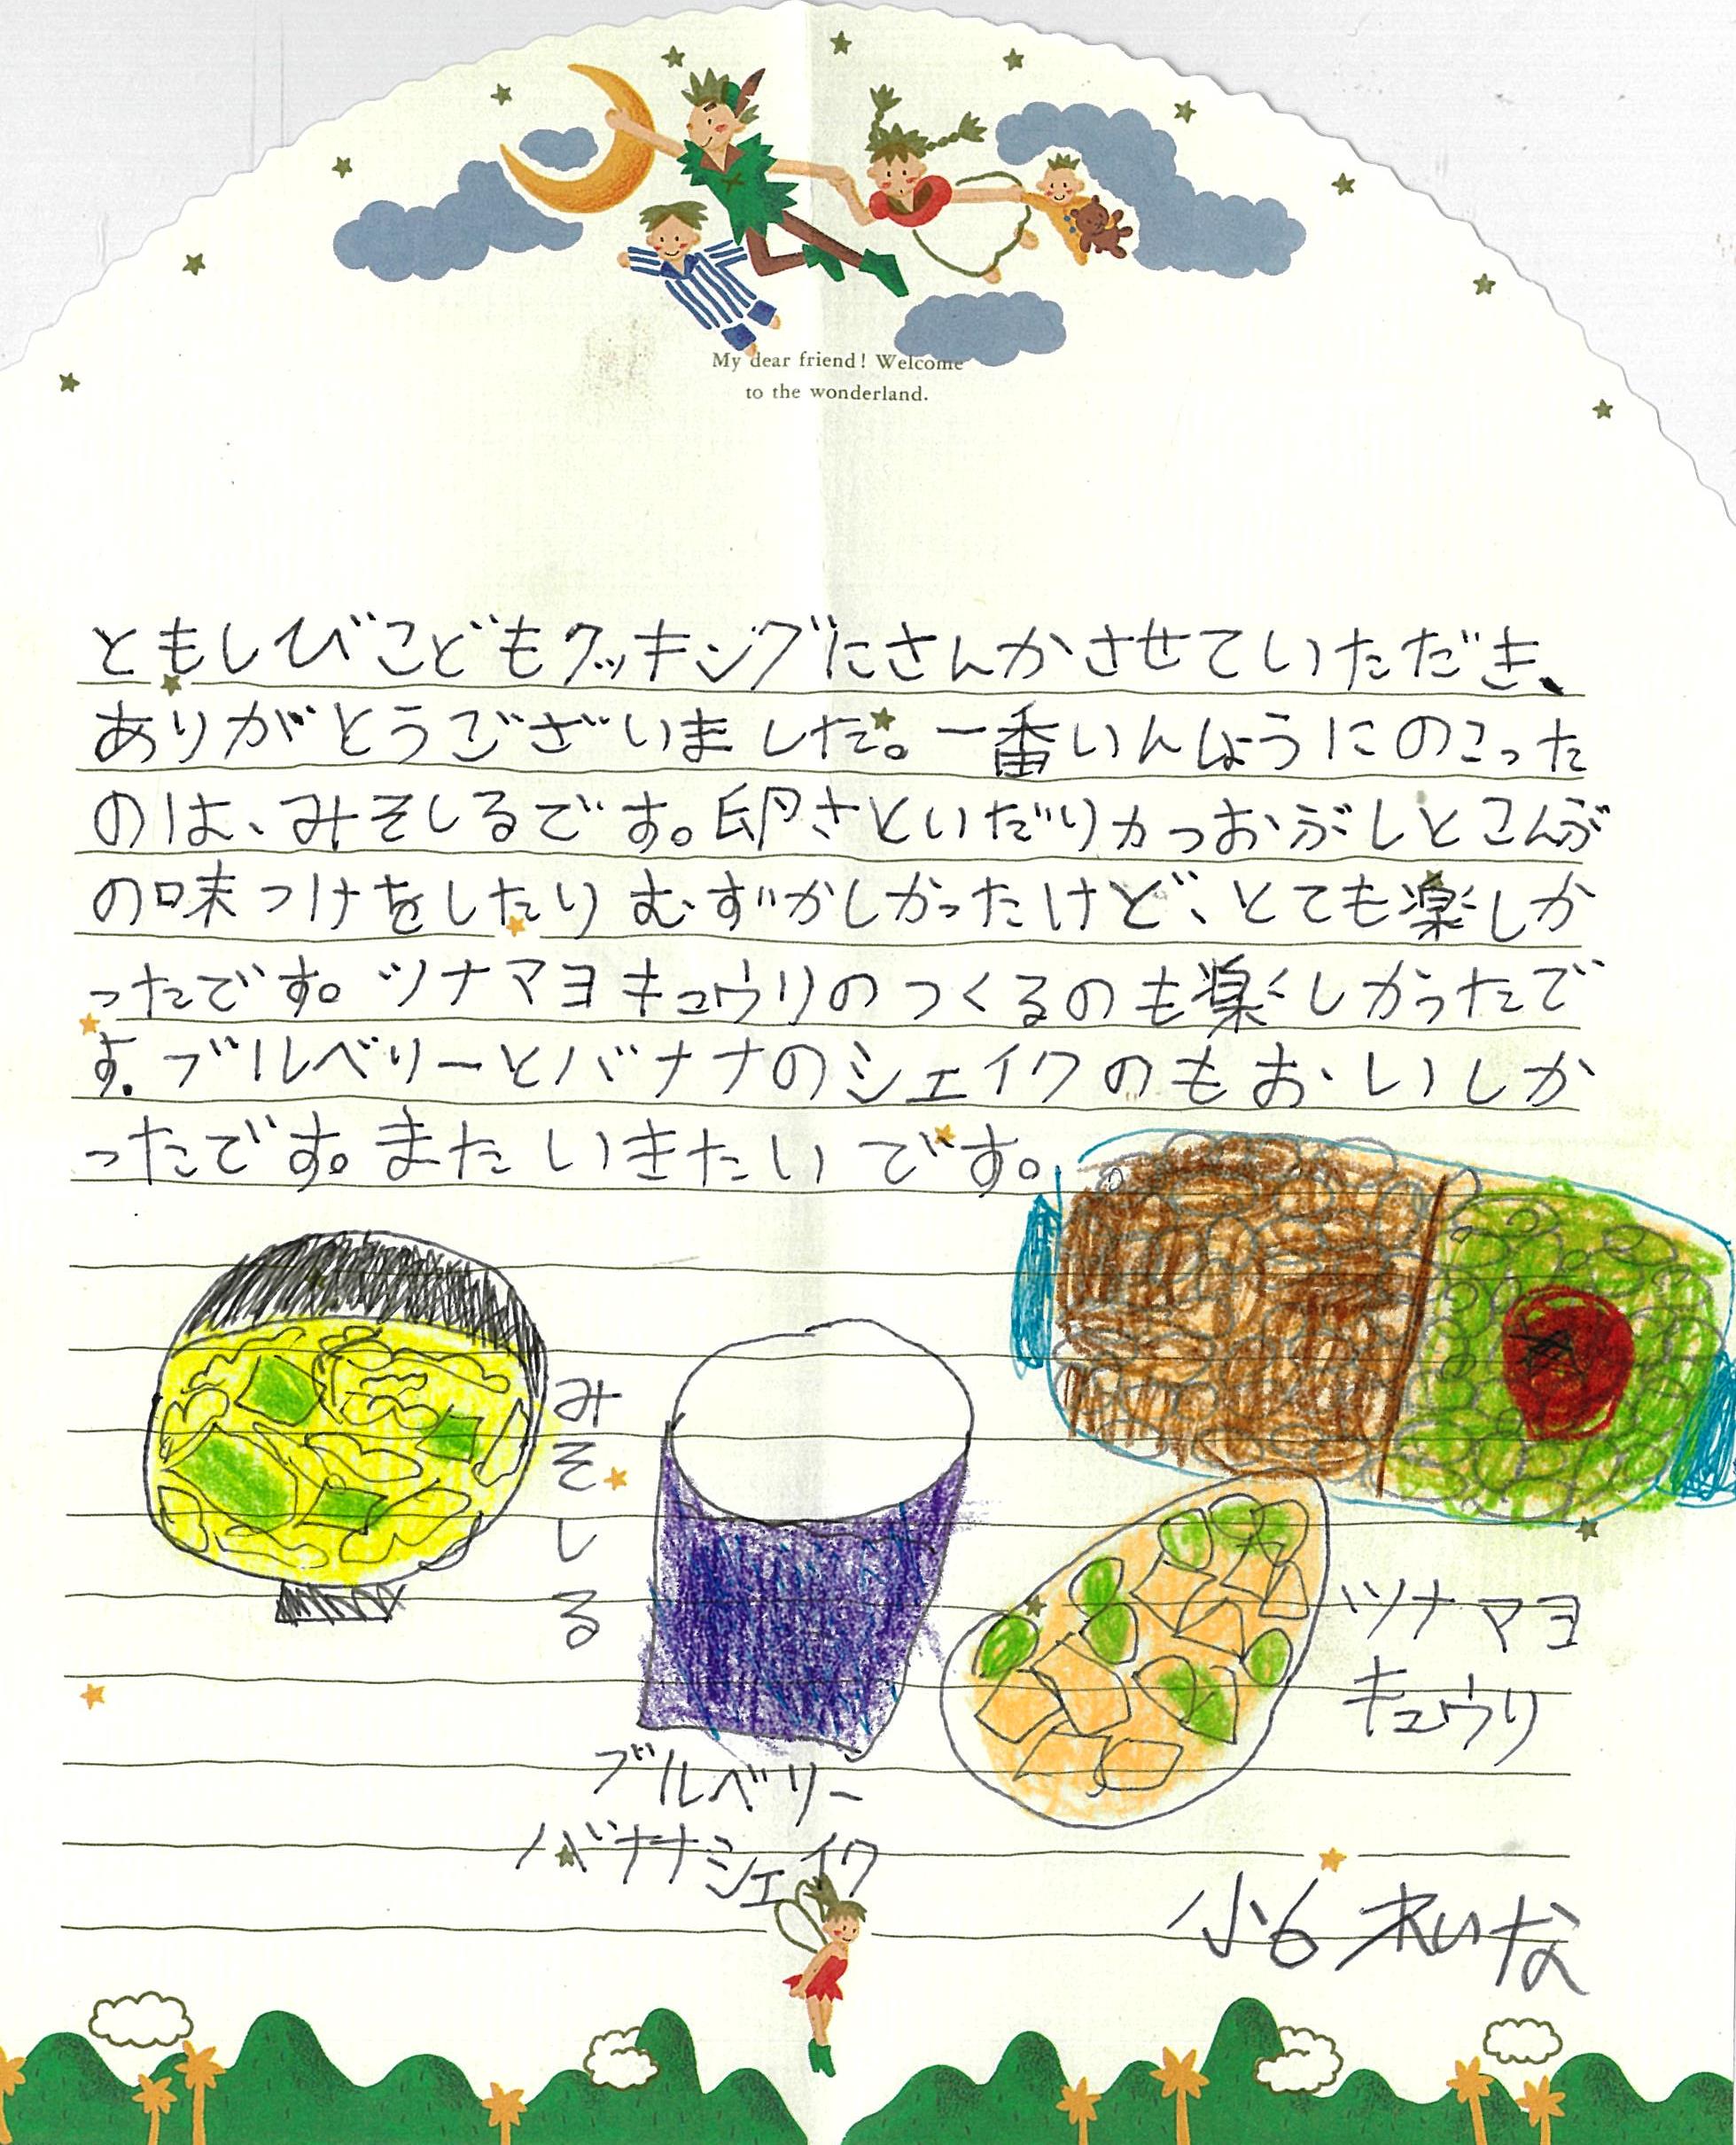 My dear friend! Welcome
to the wonderland.
ともしびこどもクッキングにさんかさせていただき、
ありがとうございました。一番いんしょうにのこった
のは、みそしるです。卵さといだりかつおぶしとこんぶ
の味つけをしたりむずかしかったけど、とても楽しか
ったです。ツナマヨキュウリのつくるのも楽しかったで
す。ブルベリーとバナナのシェイクのもおいしか
ったです。またいきたいです。
みそしる
ツナマヨ
キュウリ
ブルベリー
バナナシェイク
小6 れいな